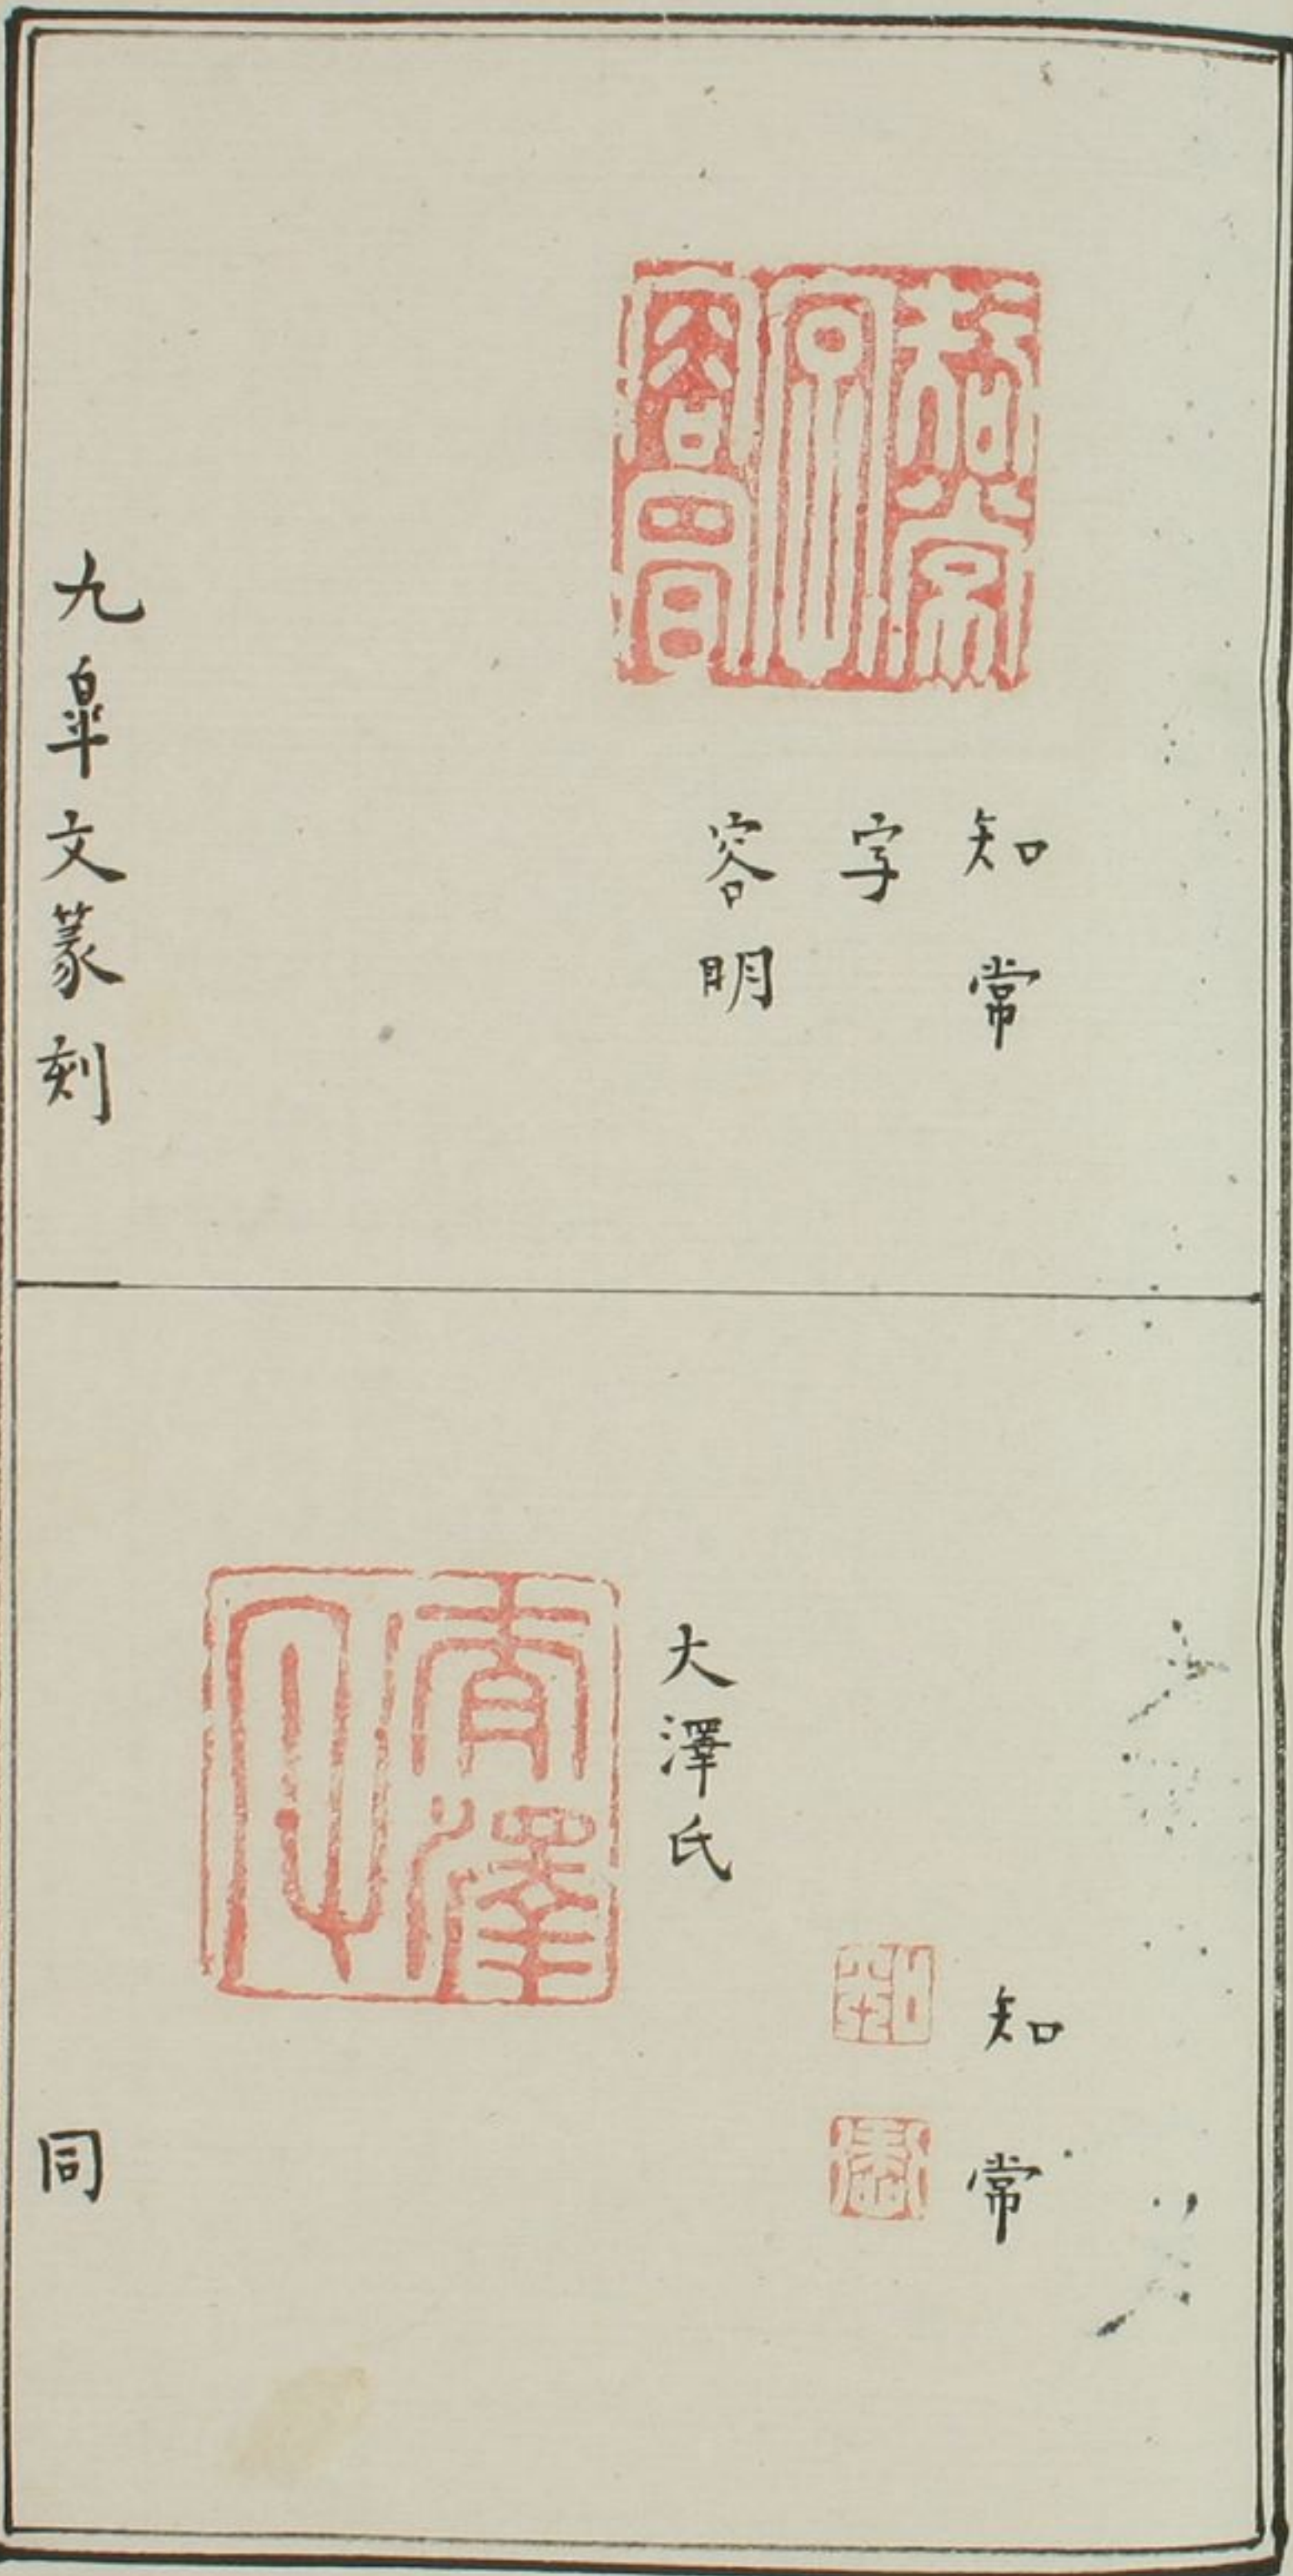 知常
字
容明
九皐文篆刻
知常
大澤氏
同